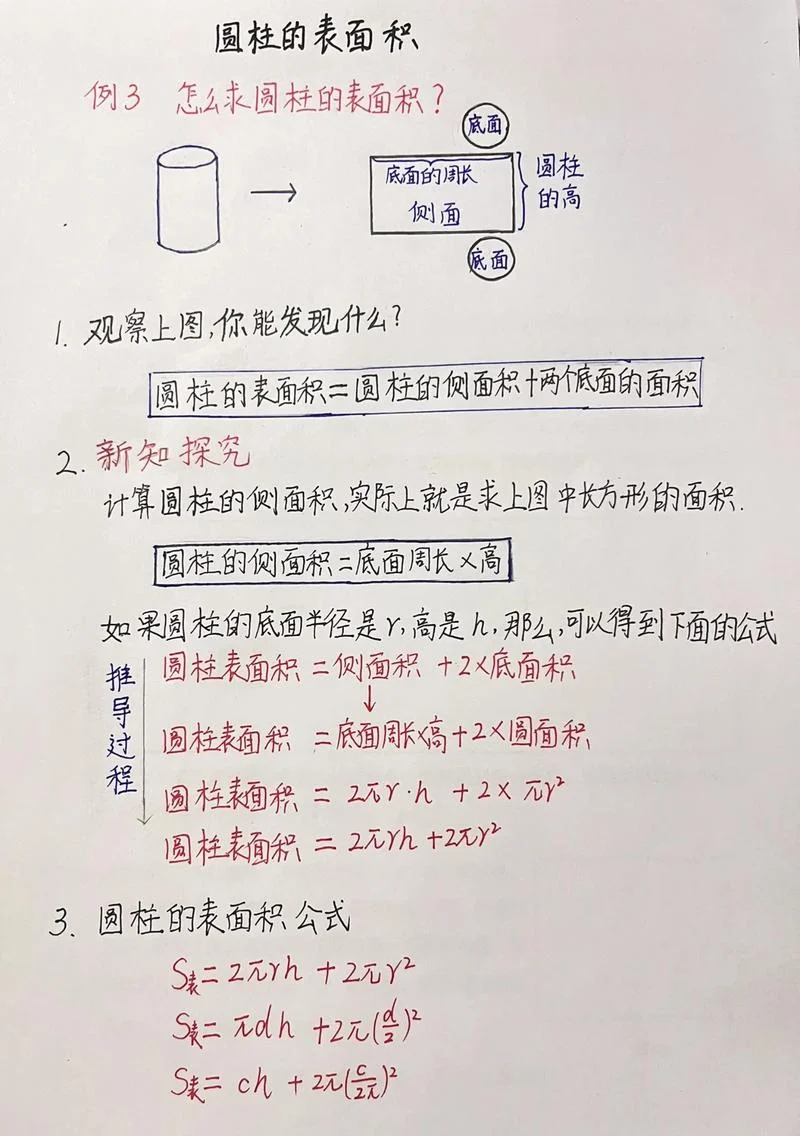 圆柱的表面积
例3 怎么求圆柱的表面积?
底面
底面的周长
侧面
圆柱
的高
底面
1. 观察上图,你能发现什么?
圆柱的表面积=圆柱的侧面积+两个底面的面积
2. 新知探究
计算圆柱的侧面积,实际上就是求上图中长方形的面积.
圆柱的侧面积=底面周长×高
如果圆柱的底面半径是r,高是h,那么,可以得到下面的公式
推导过程
圆柱表面积=侧面积+2×底面积
圆柱表面积=底面周长×高+2×圆面积
圆柱表面积=2πr·h+2×πr²
圆柱表面积=2πrh+2πr²
3. 圆柱的表面积公式
S表=2πrh+2πr²
S表=πdh+2π(d/2)²
S表=ch+2π(c/2π)²